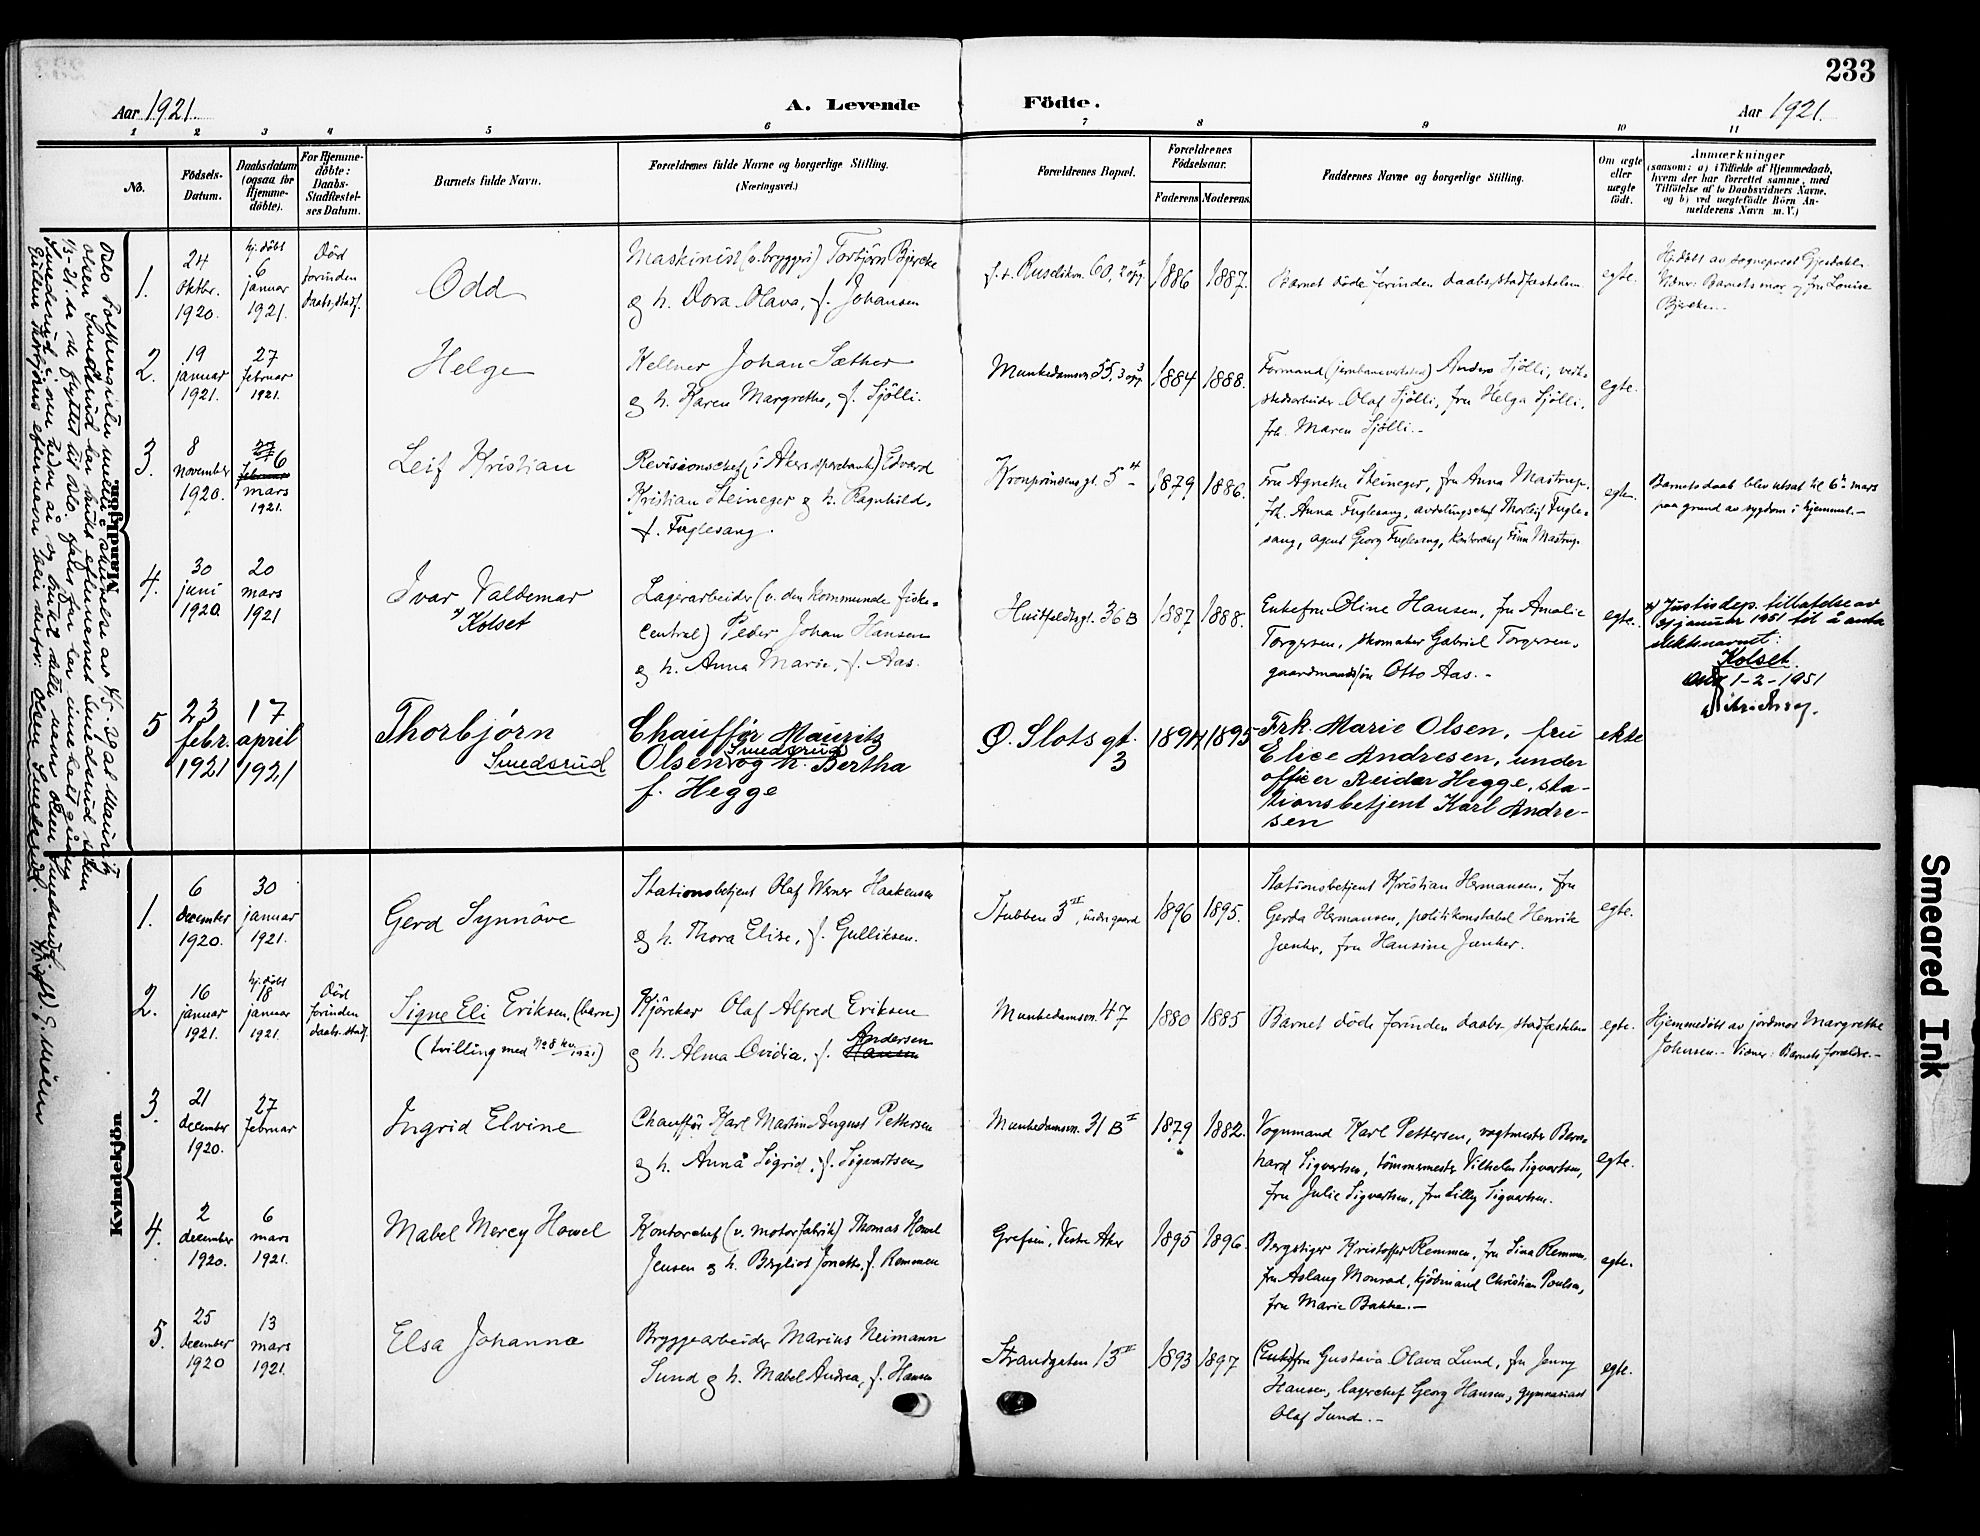 233
Aar 1921.
A. Levende Födte.
Aar 1921.
1 2 3 4 5 6 7 8 9 10 11
No.
Födsels-
Datum.
Daabsdatum
(ogsaa for
Hjemme-
döbte).
For Hjemme-
döbte:
Daabs-
Stadfæstel-
ses Datum.
Barnets fulde Navn.
Forældrenes fulde Navne og borgerlige Stilling.
(Næringsvei.)
Forældrenes Bopæl.
Forældrenes
Födselsaar.
Faderens Moderens.
Faddernes Navne og borgerlige Stilling.
Om ægte
eller
uægte
födt.
Anmærkninger
(saasom: a) i Tilfælde af Hjemmedaab,
hvem der har forrettet samme, med
Tilföielse af to Daabsvidners Navne,
og b) ved uægtefödte Börn An-
melderens Navn m. V.)
Mandkjön.
1.
24
oktbr.
1920.
hj. döbt
6
januar
1921.
Död
forinden
daabs.stadf.
Odd
Maskinist (v. bryggeri) Torbjörn Bjercke
og h. Dora Olava, f. Johansen
60, 2 opg.
1886
1887.
Barnet döde forinden daabs.stadfæstelsen
egte.
Hj.döbt av sogneprest Gjerdahl.
Barnets mor og fru Louise
Bjercke.
2.
19
januar
1921.
27
februar
1921.
Helge
Kellner Johan Sæther
og h. Karen Margrethe, f. Sjölli.
Munkedamsvn. 55, 3 opg.
1884
1888.
Formand (jernbaneverksted) Anders Sjölli, verk-
stedsarbeider Olaf Sjölli, fru Helga Sjölli,
frk. Maren Sjölli.-
egte.
3.
8
november
1920.
27
februar
6
mars
1921.
Leif Kristian
Revisionschef (i Akers sparebank) Edvard
Kristian Steineger og h. Ragnhild,
f. Fuglesang.
Kronprinsens gt. 5
1879
1886.
Fru Agnethe Steineger, fru Anna Mastrup,
frk. Anna Fuglesang, avdelingschef Thorleif Fugle-
sang, agent Georg Fuglesang, kontorchef Finn Mastrup.
egte.
Barnets daab blev utsat til 6te mars
paa grund av sygdom i hjemmet.-
4.
30
juni
1920.
20
mars
1921
Ivar Valdemar
x) Kolset
Lagerarbeider (v. den kommunale fiske-
central) Peder Johan Hansen
og h. Anna Marie, f. Aas.
Huitfeldtsgt. 36 B
1887
1888.
Enkefru Oline Hansen, fru Amalie
Torgersen, skomaker Gabriel Torgersen,
gaardmandssön Otto Aas.-
egte.
x) Justisdep. tillatelse av
31 januar 1951 til å anta
slektsnavnet:
Kolset.
Oslo 1-2-1951
5
23
febr.
1921
17
april
1921
Thorbjörn
Smedsrud
Chaufför Mauritz
Smedsrud
Olsen og h. Bertha
f. Hegge
Ö. Slots gt.
3
1894
1895
Frk. Marie Olsen, fru
Elice Andresen, under
officer Reidar Hegge, sta-
tionsbetjent Karl Andre-
sen
ekte
Kvindekjön
1.
6
december
1920.
30
januar
1921.
Gerd Synnöve
Stationsbetjent Olaf Werner Haakensen
og h. Thora Elise, f. Gulliksen.
Stubben 3 II, indre gaard
1896
1895.
Stationsbetjent Kristian Hermansen, fru
Gerda Hermansen, politikonstabel Henrik
Junker, fru Hansine Junker.
egte.
2.
16
januar
1921.
hj. döbt
18
januar
1921.
Död
forinden
daabs.stadf.
Signe Eli Eriksen. (barn)
(tvilling med no 8 kv. 1921)
Kjörekar Olaf Alfred Eriksen
og h. Alma Ovidia, f. Hansen
Andersen
Munkedamsvn. 47
1880
1885
Barnet döde forinden daabs-stadfæstelsen
egte.
Hjemmedöbt av jordmor Margrethe
Johnsen.- Vidner: Barnets forældre.-
3.
21
december
1920.
27
februar
Ingrid Elvine
Chaufför Karl Martin August Pettersen
og h. Anna Sigrid, f. Sigvartsen
Munkedamsvn. 31 B II
1879
1882.
Vognmand Karl Pettersen, vogtmester Bern-
hard Sigvartsen, tömmermester Vilhelm Sigvartsen,
fru Julie Sigvartsen, fru Lilly Sigvartsen.
egte.
4.
2
december
1920.
6
mars
1921.
Mabel Mercy Howel
Kontorchef (v. motorfabrik) Thomas Howel
Jensen og h. Bergliot Jonette, f. Remmen
Grefsen, Vestre Aker
1895
1896.
Bergstiger Kristoffer Remmen, fru Lina Remmen,
fru Aslaug Monrad, kjöbmand Christian Poulsen,
fru Marie Bakke.-
egte.
5.
25
december
1920
13
mars
1921.
Elsa Johanna
Bryggearbeider Marius Neimann
Lund og h. Mabel Andrea, f. Hansen
Strandgaten 13 II
1893
1897
(Enke)fru Gustava Olava Lund, fru Jenny
Hansen, lagerchef Georg Hansen, gymnasiast
Olaf Lund.-
egte.
Smeared Ink